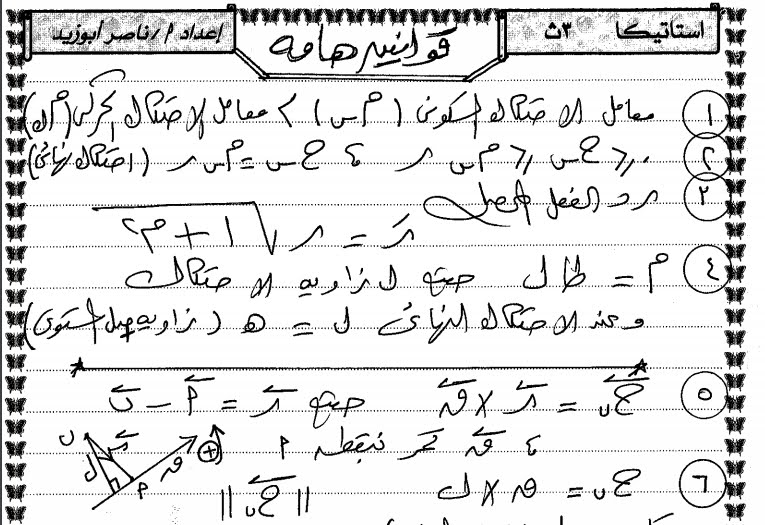 استاتيكا ٣ث
قوانين هامه
إعداد م/ناصر ابوزيد
١ معامل الاحتكاك السكونى (م س) > معامل الاحتكاك الحركى (م ك)
٢ ٠ ≤ ح س ≤ م س ر ، ح س = م س ر (احتكاك نهائى)
٢ رد الفعل المحصل
رَ = ر √١ + م٢
٤ م = طا ل حيث ل زاويه الاحتكاك
وعند الاحتكاك النهائى ل = ه (زاويه ميل المستوى)
٥ ج ن = ر × ق حيث ر = م - ن
، ق تمر بنقطه م
ن ر ل م ق +
٦ ج ن = ق × ل || ج ن ||